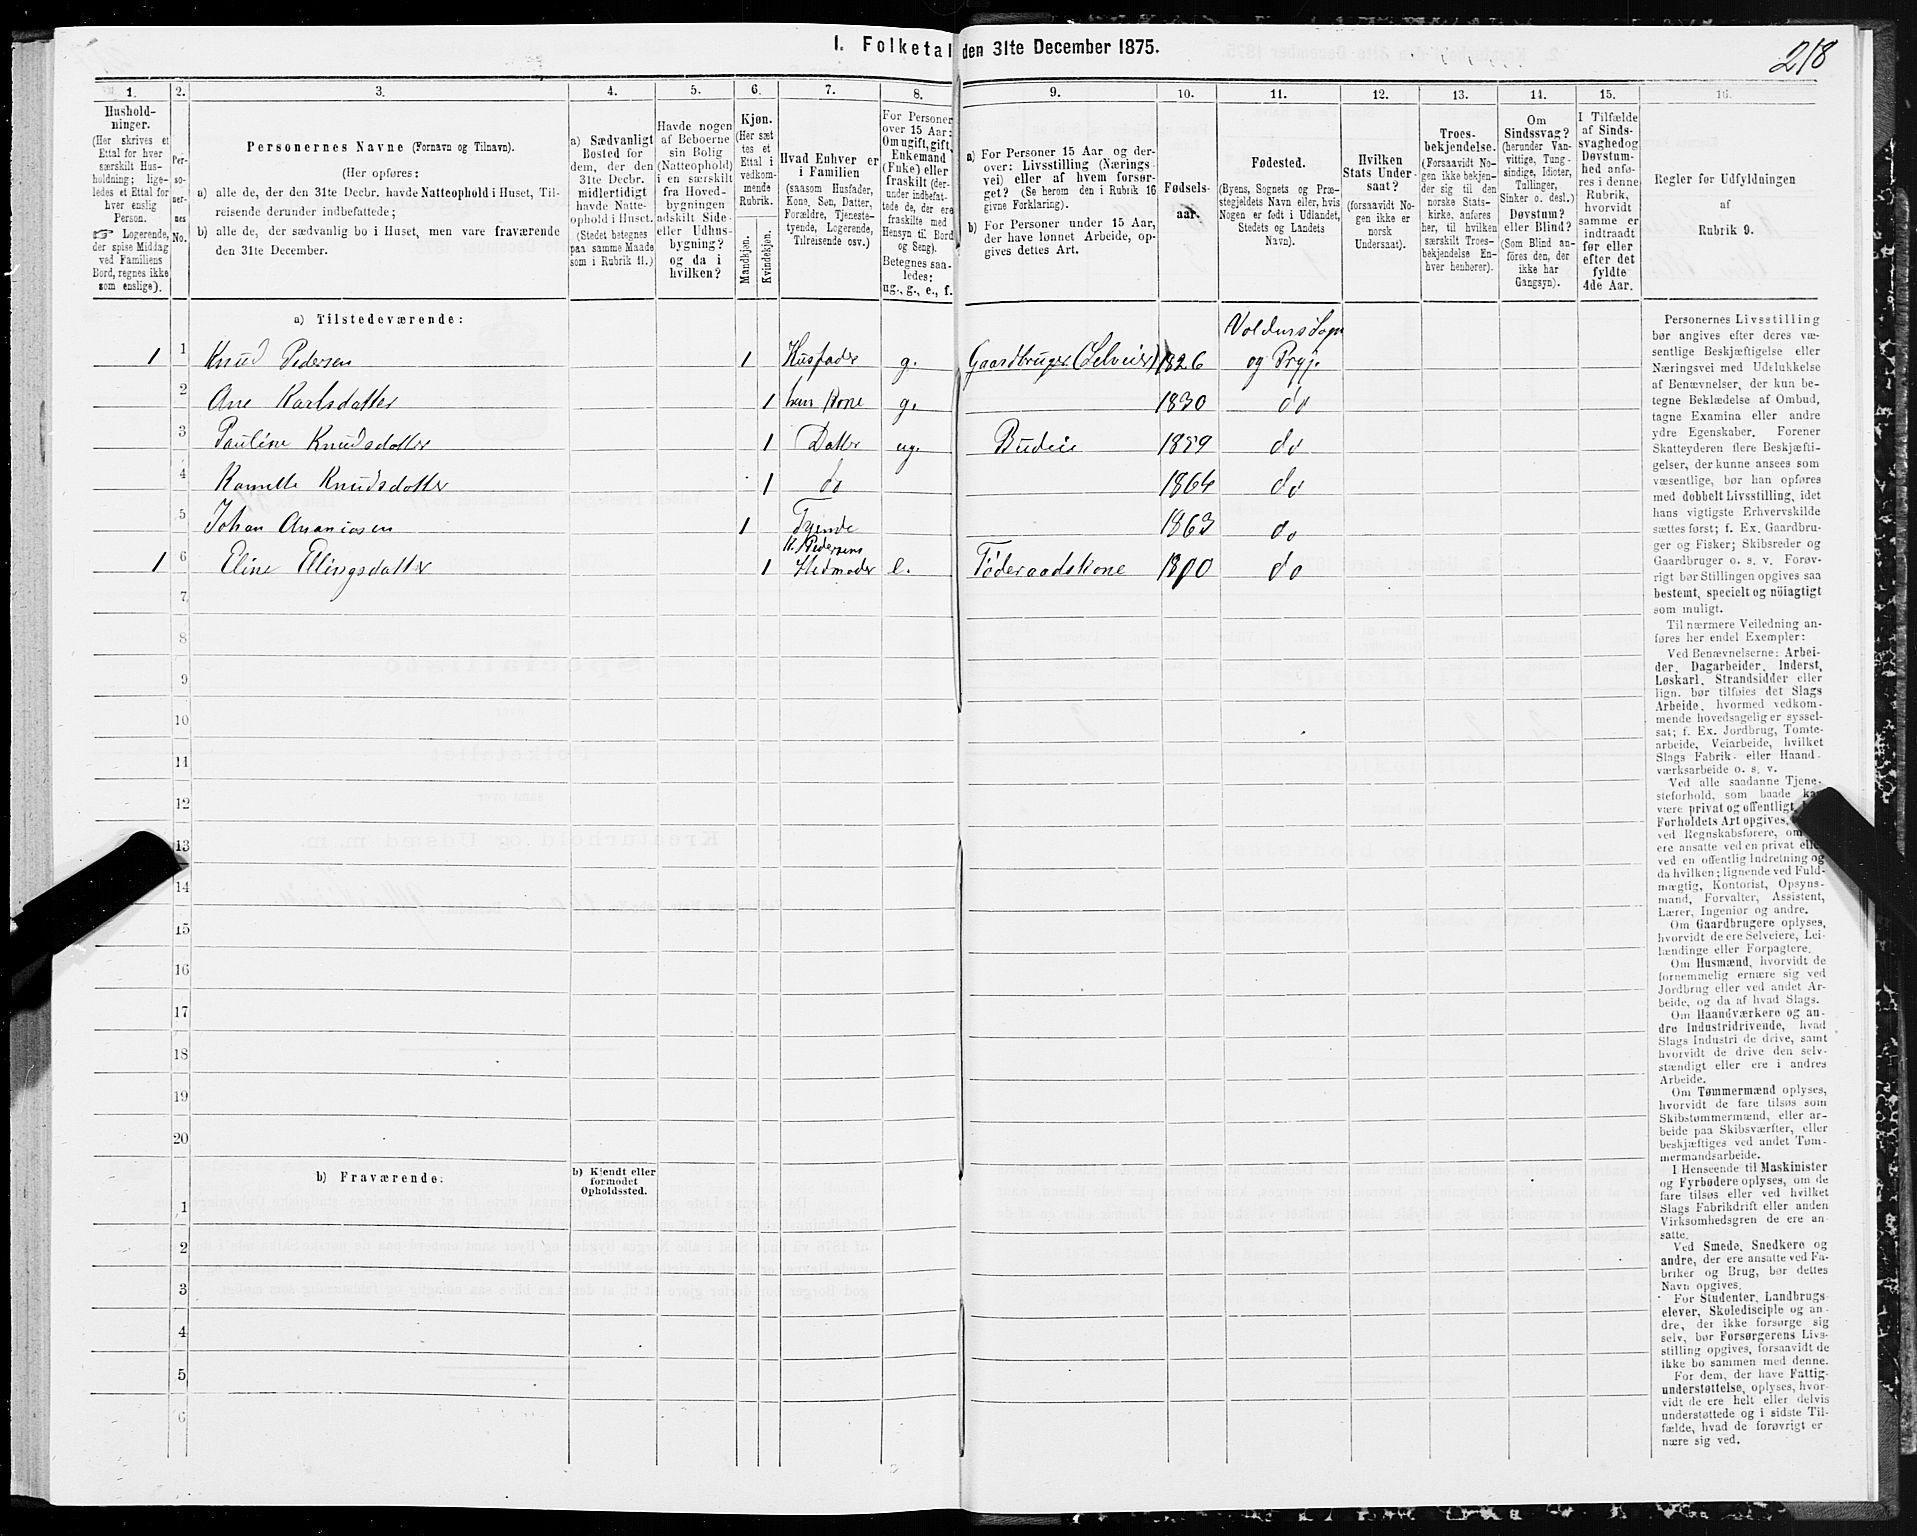 I. Folketal den 31te December 1875.
218
1. 2. 3. 4. 5. 6. 7. 8. 9. 10. 11. 12. 13. 14. 15. 16.
Hushold-
ninger.
(Her skrives et
Ettal for hver
særskilt Hus-
holdning; lige-
ledes et Ettal for
hver enslig
Person.
☞ Logerende,
der spise Middag
ved Familiens
Bord, regnes ikke
som enslige).
Per-
so-
ner-
nes
No.
Personernes Navne (Fornavn og Tilnavn).
(Her opføres:
a) alle de, der den 31te Decbr. havde Natteophold i Huset, Til-
reisende derunder indbefattede;
b) alle de, der sædvanlig bo i Huset, men vare fraværende
den 31te December.
a) Sædvanligt
Bosted for
dem, der den
31te Decbr.
midlertidigt
havde Natte-
ophold i Huset.
(Stedet betegnes
paa samme Maade
som i Rubrik 11.)
Havde nogen
af Beboerne
sin Bolig
(Natteophold)
i en særskilt
fra Hoved-
bygningen
adskilt Side-
eller Udhus-
bygning?
og da i
hvilken?
Kjøn.
(Her sæt
tes et
Ettal i
vedkom-
mende
Rubrik.
Mandkjøn.
Kvindekjøn.
Hvad Enhver er
i Familien
(saasom Husfader,
Kone, Søn, Datter,
Forældre, Tjeneste-
tyende, Logerende,
Tilreisende osv.)
For Personer
over 15 Aar:
Om ugift, gift,
Enkemand
(Enke) eller
fraskilt (der-
under indbefat-
tede de, der ere
fraskilte med
Hensyn til Bord
og Seng).
Betegnes saa-
ledes:
ug., g., e., f.
a) For Personer 15 Aar og der-
over: Livsstilling (Nærings-
vei) eller af hvem forsør-
get? (Se herom den i Rubrik 16
givne Forklaring).
b) For Personer under 15 Aar,
der have lønnet Arbeide, op-
gives dettes Art.
Fødsels-
aar.
Fødested.
(Byens, Sognets og Præ-
stegjeldets Navn eller, hvis
Nogen er født i Udlandet,
Stedets og Landets
Navn).
Hvilken
Stats Under-
saat?
(forsaavidt No-
gen ikke er
norsk
Undersaat).
Troes-
bekjendelse.
(Forsaavidt No-
gen ikke bekjen-
der sig til den
norske Stats-
kirke, anføres
her, til hvilken
særskilt Troes-
bekjendelse En-
hver henhører).
Om
Sindssvag?
(herunder Van-
vittige, Tung-
sindige, Idioter,
Tullinger,
Sinker o. desl.)
Døvstum?
eller Blind?
(Som Blind an-
føres den, der
ikke har
Gangsyn).
I Tilfælde
af Sinds-
svaghed og
Døvstum-
hed anfø-
res i denne
Rubrik,
hvorvidt
samme er
indtraadt
før eller
efter det
fyldte
4de Aar.
Regler for Udfyldningen
af
Rubrik 9.
a) Tilstedeværende:
1 1 Knud Pedersen 1 Husfader g. Gaardbruger (Selveier) 1826 Voldens Sogn og Prgj.
2 Ane Karlsdatter 1 hans Kone g. 1830 do
3 Pauline Knudsdatter 1 Datter ug. Budeie 1859 do
4 Kamelle Knudsdatter 1 do 1864 do
5 Johan Ananiasen 1 Tyende 1863 do
1 6 Eline Ellingsdatter 1 K. Pedersens Stedmoder e. Føderaadskone 1800 do
7
8
9
10
11
12
13
14
15
16
17
18
19
20
b) Fraværende:
b) Kjendt eller
formodet
Opholdssted.
1
2
3
4
5
6
Personernes Livsstilling
bør angives efter deres væ-
sentlige Beskjæftigelse eller
Næringsvei med Udelukkelse
af Benævnelser, der kun be-
tegne Beklædelse af Ombud,
tagne Examina eller andre
ydre Egenskaber. Forener
Skatteyderen flere Beskjæfti-
gelser, der kunne ansees som
væsentlige, bør han opføres
med dobbelt Livsstilling, idet
hans vigtigste Erhvervskilde
sættes først; f. Ex. Gaardbru-
ger og Fisker; Skibsreder og
Gaardbruger o. s. v. Forøv-
rigt bør Stillingen opgives saa
bestemt, specielt og nöiagtigt
som muligt.
Til nærmere Veiledning an-
føres her endel Exempler:
Ved Benævnelserne: Arbei-
der, Dagarbeider, Inderst,
Løskarl, Strandsidder eller
lign. bør tilføies det Slags
Arbeide, hvormed vedkom-
mende hovedsagelig er syssel-
sat; f. Ex. Jordbrug, Tomte-
arbeide, Veiarbeide, hvilket
Slags Fabrik- eller Haand-
værksarbeide o. s. v.
Ved alle saadanne Tjene-
steforhold, som baade kan
være privat og offentligt,
Forholdets Art opgives,
ved Regnskabsførere, om
ere ansatte ved en privat eller
ved en offentlig Indretning og
da hvilken; lignende ved Fuld-
mægtig, Kontorist, Opsyns-
mand, Forvalter, Assistent,
Lærer, Ingeniør og andre.
Om Gaardbrugere oplyses,
hvorvidt de ere Selveiere, Lei-
lændinge eller Forpagtere.
Om Husmænd, hvorvidt de
fornemmelig ernære sig ved
Jordbrug eller ved andet Ar-
beide, og da af hvad Slags.
Om Haandværkere og an-
dre Industridrivende, hvad
Slags Industri de drive, samt
hvorvidt de drive den selv-
stændigt eller ere i andres
Arbeide.
Om Tømmermænd oplyses,
hvorvidt de fare tilsøs som
Skibstømmermænd, eller ar-
beide paa Skibsværfter, eller
beskjæftiges ved andet Tøm-
mermandsarbeide.
I Henseende til Maskinister
og Fyrbødere oplyses, om de
fare tilsøs eller ved hvilket
Slags Fabrikdrift eller anden
Virksomhedsgren de ere an-
satte.
Ved Smede, Snedkere og
andre, der ere ansatte ved Fa-
briker og Brug, bør dettes
Navn opgives.
For Studenter, Landbrugs-
elever, Skoledisciple og an-
dre, der ikke forsørge sig
selv, bør Forsørgerens Livs-
stilling opgives, forsaavidt de
ikke bo sammen med denne.
For dem, der have Fattig-
understøttelse, oplyses, hvor-
vidt de ere helt eller delvis
understøttede og i sidste Til-
fælde, hvad de forøvrigt er-
nære sig ved.